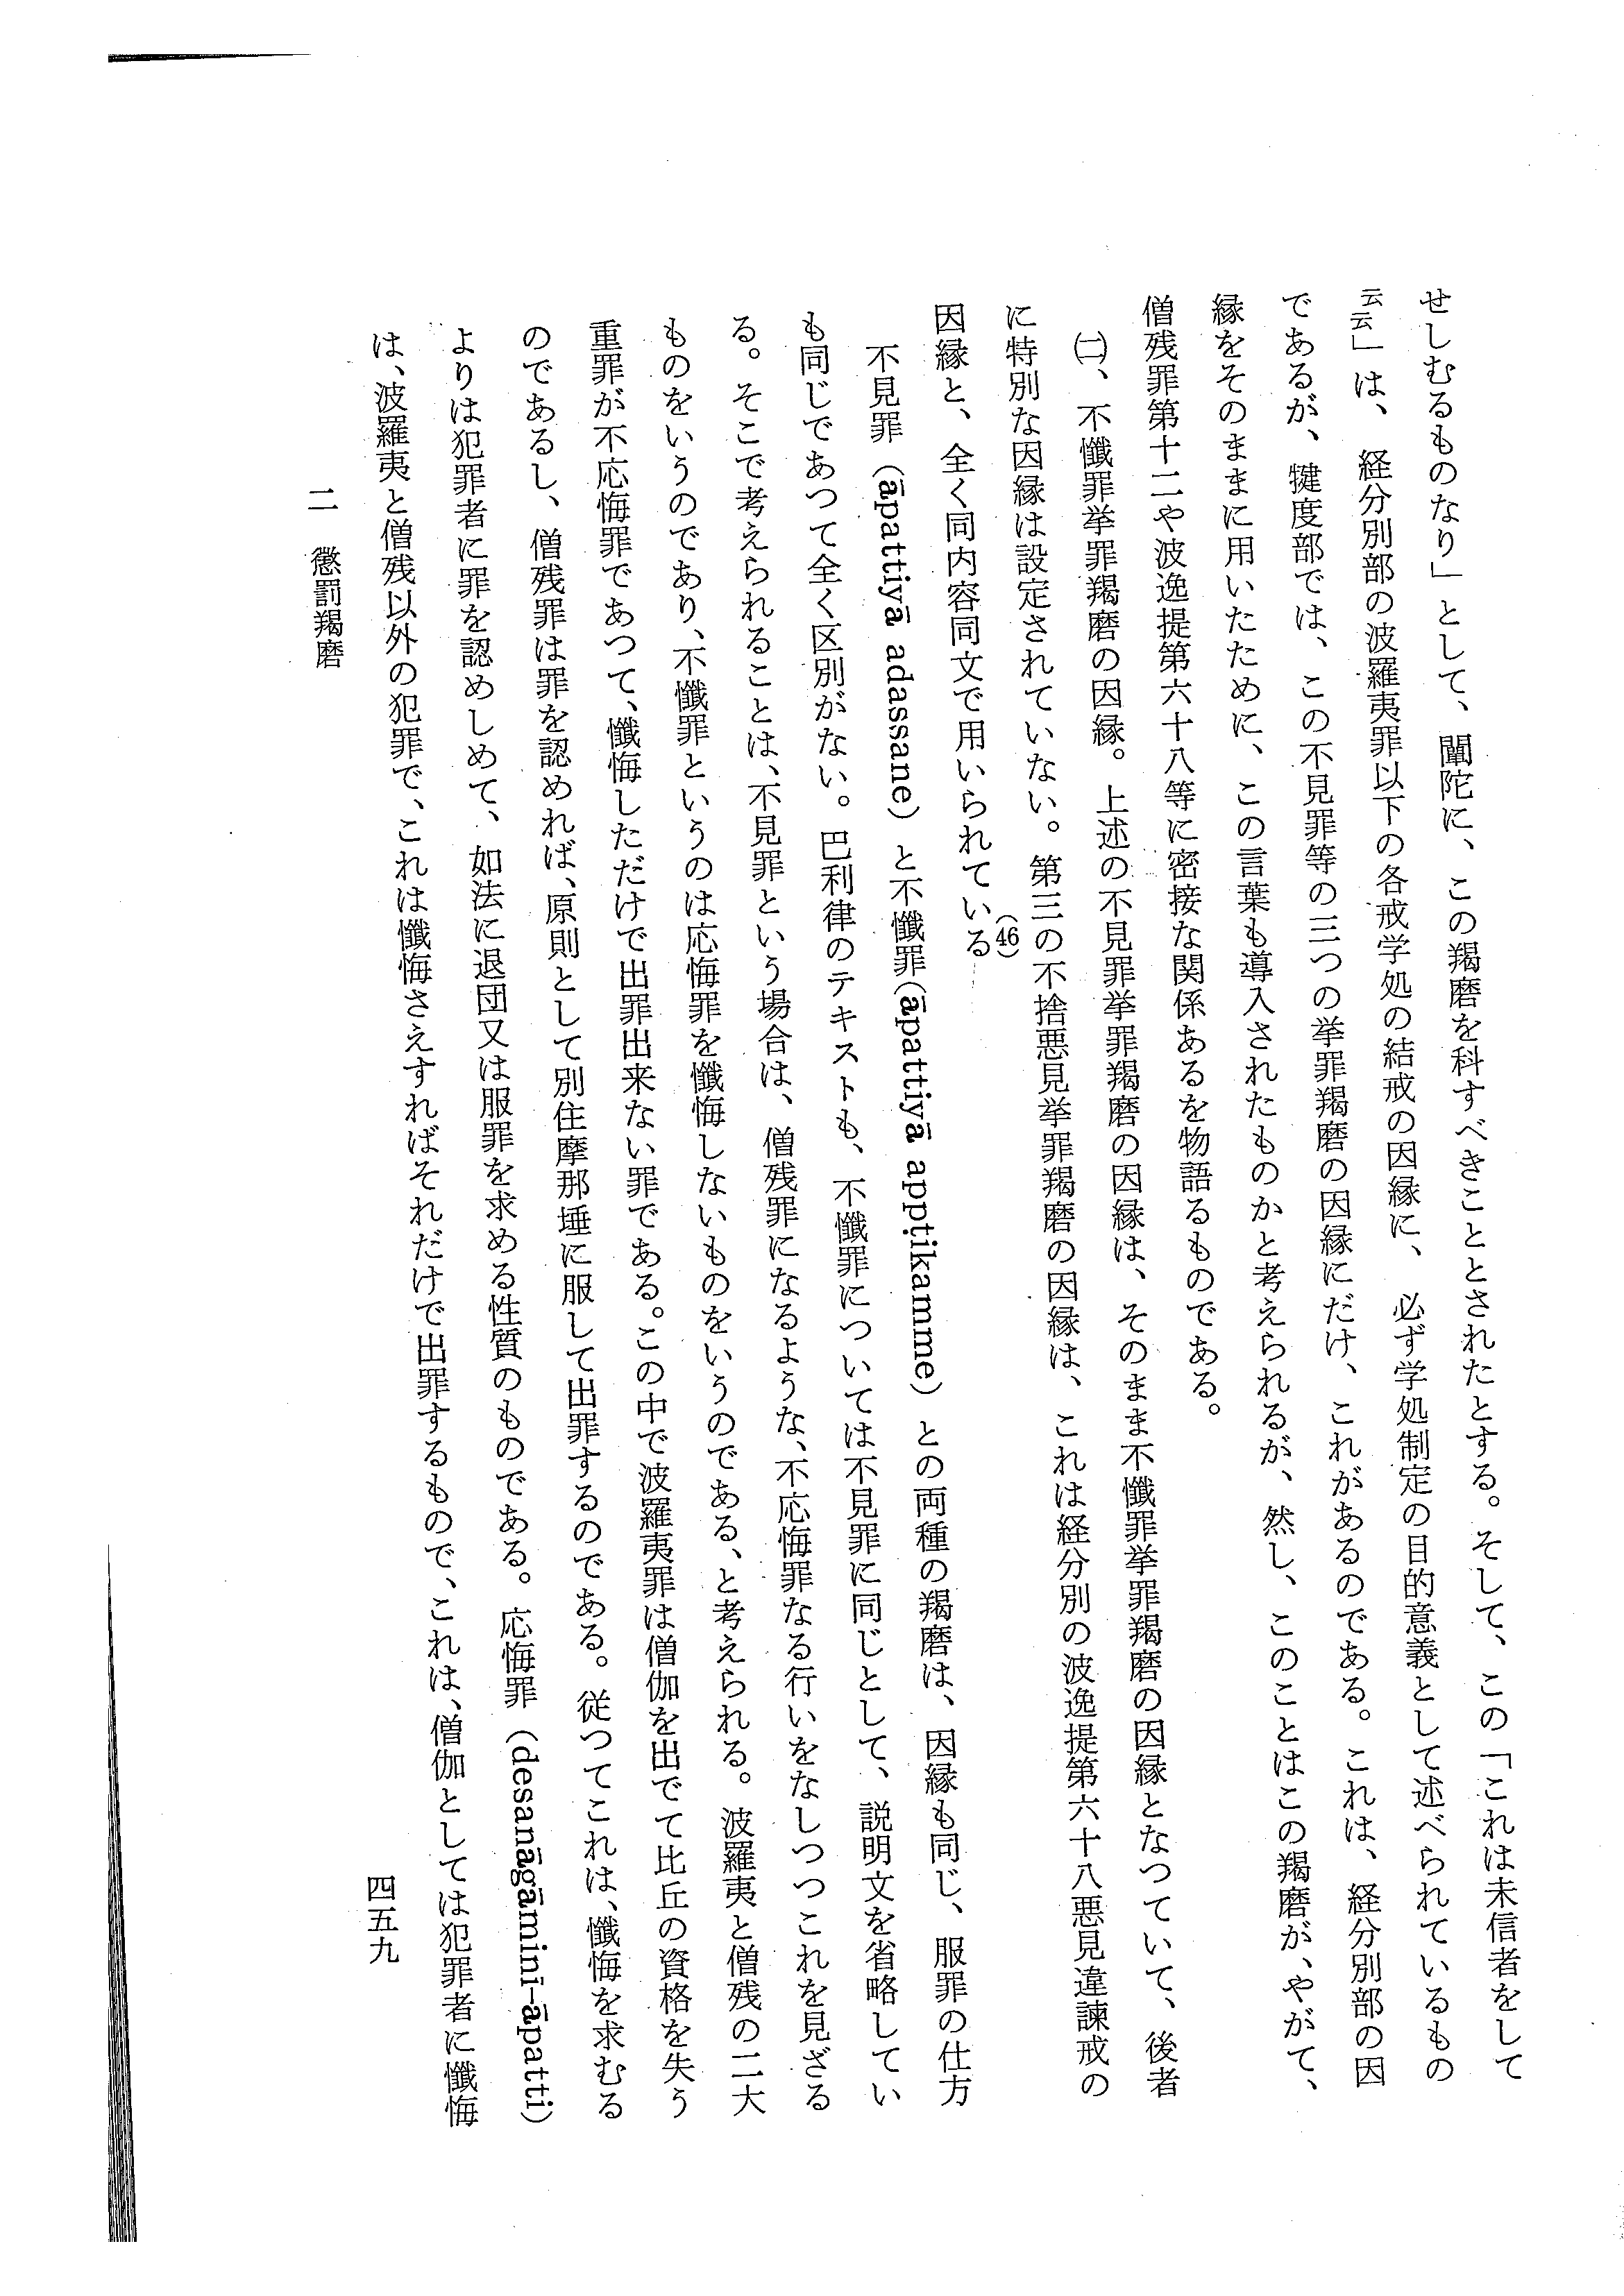 せしむるものなり」として、闡陀に、この羯磨を科すべきこととされたとする。そして、この「これは未信者をして
云云」は、経分別部の波羅夷罪以下の各戒学処の結戒の因縁に、必ず学処制定の目的意義として述べられているもの
であるが、犍度部では、この不見罪等の三つの挙罪羯磨の因縁にだけ、これがあるのである。これは、経分別部の因
縁をそのままに用いたために、この言葉も導入されたものかと考えられるが、然し、このことはこの羯磨が、やがて、
僧残罪第十二や波逸提第六十八等に密接な関係あるを物語るものである。
㈡、不懺罪挙罪羯磨の因縁。上述の不見罪挙罪羯磨の因縁は、そのまま不懺罪挙罪羯磨の因縁となつていて、後者
に特別な因縁は設定されていない。第三の不捨悪見挙罪羯磨の因縁は、これは経分別の波逸提第六十八悪見違諫戒の
因縁と、全く同内容同文で用いられている(46)
不見罪(āpattiyā adassane)と不懺罪(āpattiyā appṭikamme)との両種の羯磨は、因縁も同じ、服罪の仕方
も同じであつて全く区別がない。巴利律のテキストも、不懺罪については不見罪に同じとして、説明文を省略してい
る。そこで考えられることは、不見罪という場合は、僧残罪になるような、不応悔罪なる行いをなしつつこれを見ざる
ものをいうのであり、不懺罪というのは応悔罪を懺悔しないものをいうのである、と考えられる。波羅夷と僧残の二大
重罪が不応悔罪であつて、懺悔しただけで出罪出来ない罪である。この中で波羅夷罪は僧伽を出でて比丘の資格を失う
のであるし、僧残罪は罪を認めれば、原則として別住摩那埵に服して出罪するのである。従つてこれは、懺悔を求むる
よりは犯罪者に罪を認めしめて、如法に退団又は服罪を求める性質のものである。応悔罪(desanāgāminī-āpatti)
は、波羅夷と僧残以外の犯罪で、これは懺悔さえすればそれだけで出罪するもので、これは、僧伽としては犯罪者に懺悔
二 懲罰羯磨
四五九